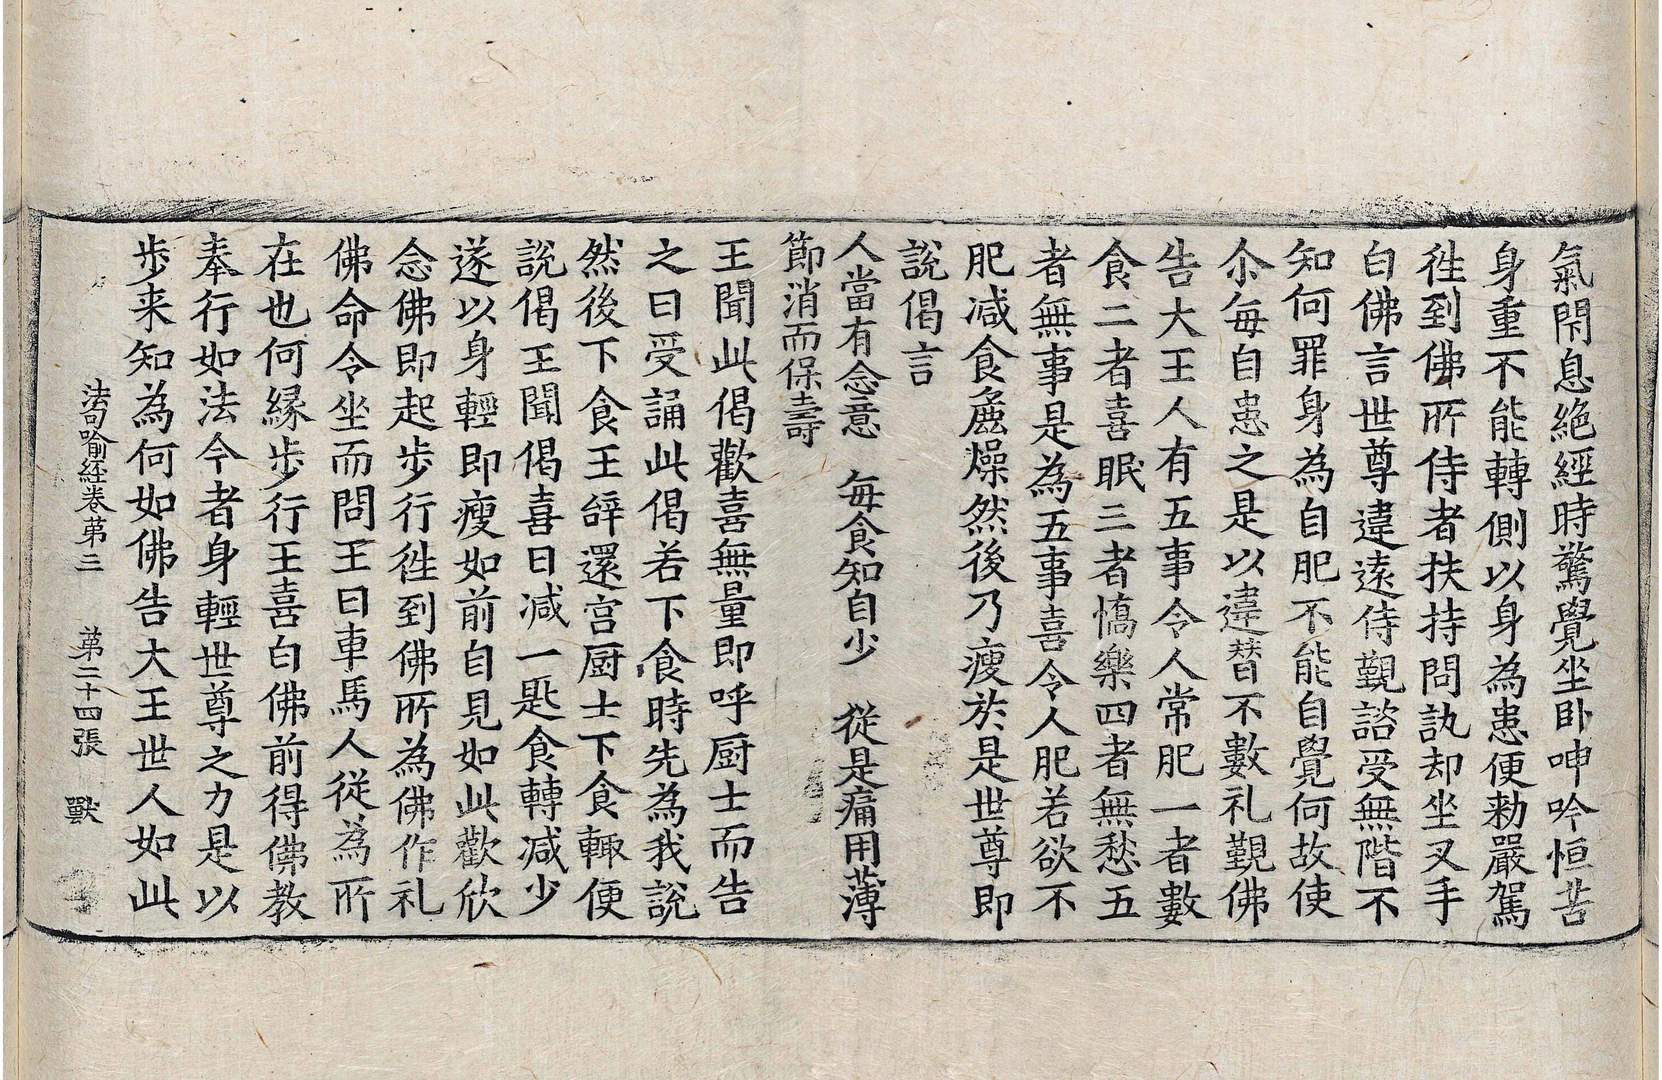 氣閇息絶經時驚覺坐卧呻吟恒苦
身重不能轉側以身為患便勑嚴駕
徃到佛所侍者扶持問訊却坐叉手
白佛言世尊違遠侍覲諮受無階不
知何罪身為自肥不能自覺何故使
尒每自患之是以違替不數礼覲佛
告大王人有五事令人常肥一者數
食二者喜眠三者憍樂四者無愁五
者無事是為五事喜令人肥若欲不
肥减食麁燥然後乃瘦於是世尊即
說偈言
人當有念意　每食知自少　從是痛用薄
節消而保壽
王聞此偈歡喜無量即呼厨士而告
之曰受誦此偈若下食時先為我說
然後下食王辝還宫厨士下食輙便
說偈王聞偈喜日减一匙食轉减少
遂以身輕即瘦如前自見如此歡欣
念佛即起步行徃到佛所為佛作礼
佛命令坐而問王曰車馬人從為所
在也何縁步行王喜白佛前得佛教
奉行如法今者身輕世尊之力是以
步来知為何如佛告大王世人如此
法句喻經卷苐三　苐二十四張　獸